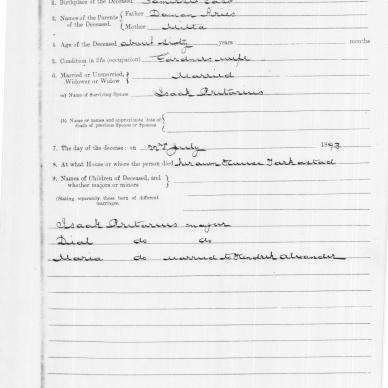 2. Birthplace of the Deceased
3. Names of the Parents of the Deceased. { Father Damon Fries
Mother Milta
4. Age of the Deceased about sixty years months
5. Condition in life (occupation) wife
6. Married or Unmarried, Widower or Widow } Married
(a) Name of Surviving Spouse Isaak Pretorius
(b) Name or names and approximate date of death of previous Spouse or Spouses
7. The day of the decease: on 22d July 1893
8. At what House or where the person died Tarkastad
9. Names of Children of Deceased, and whether majors or minors }
(Stating separately those born of different marriages.
Isaak Pretorius major
Dial do do
Maria do married to Hendrik Alexander